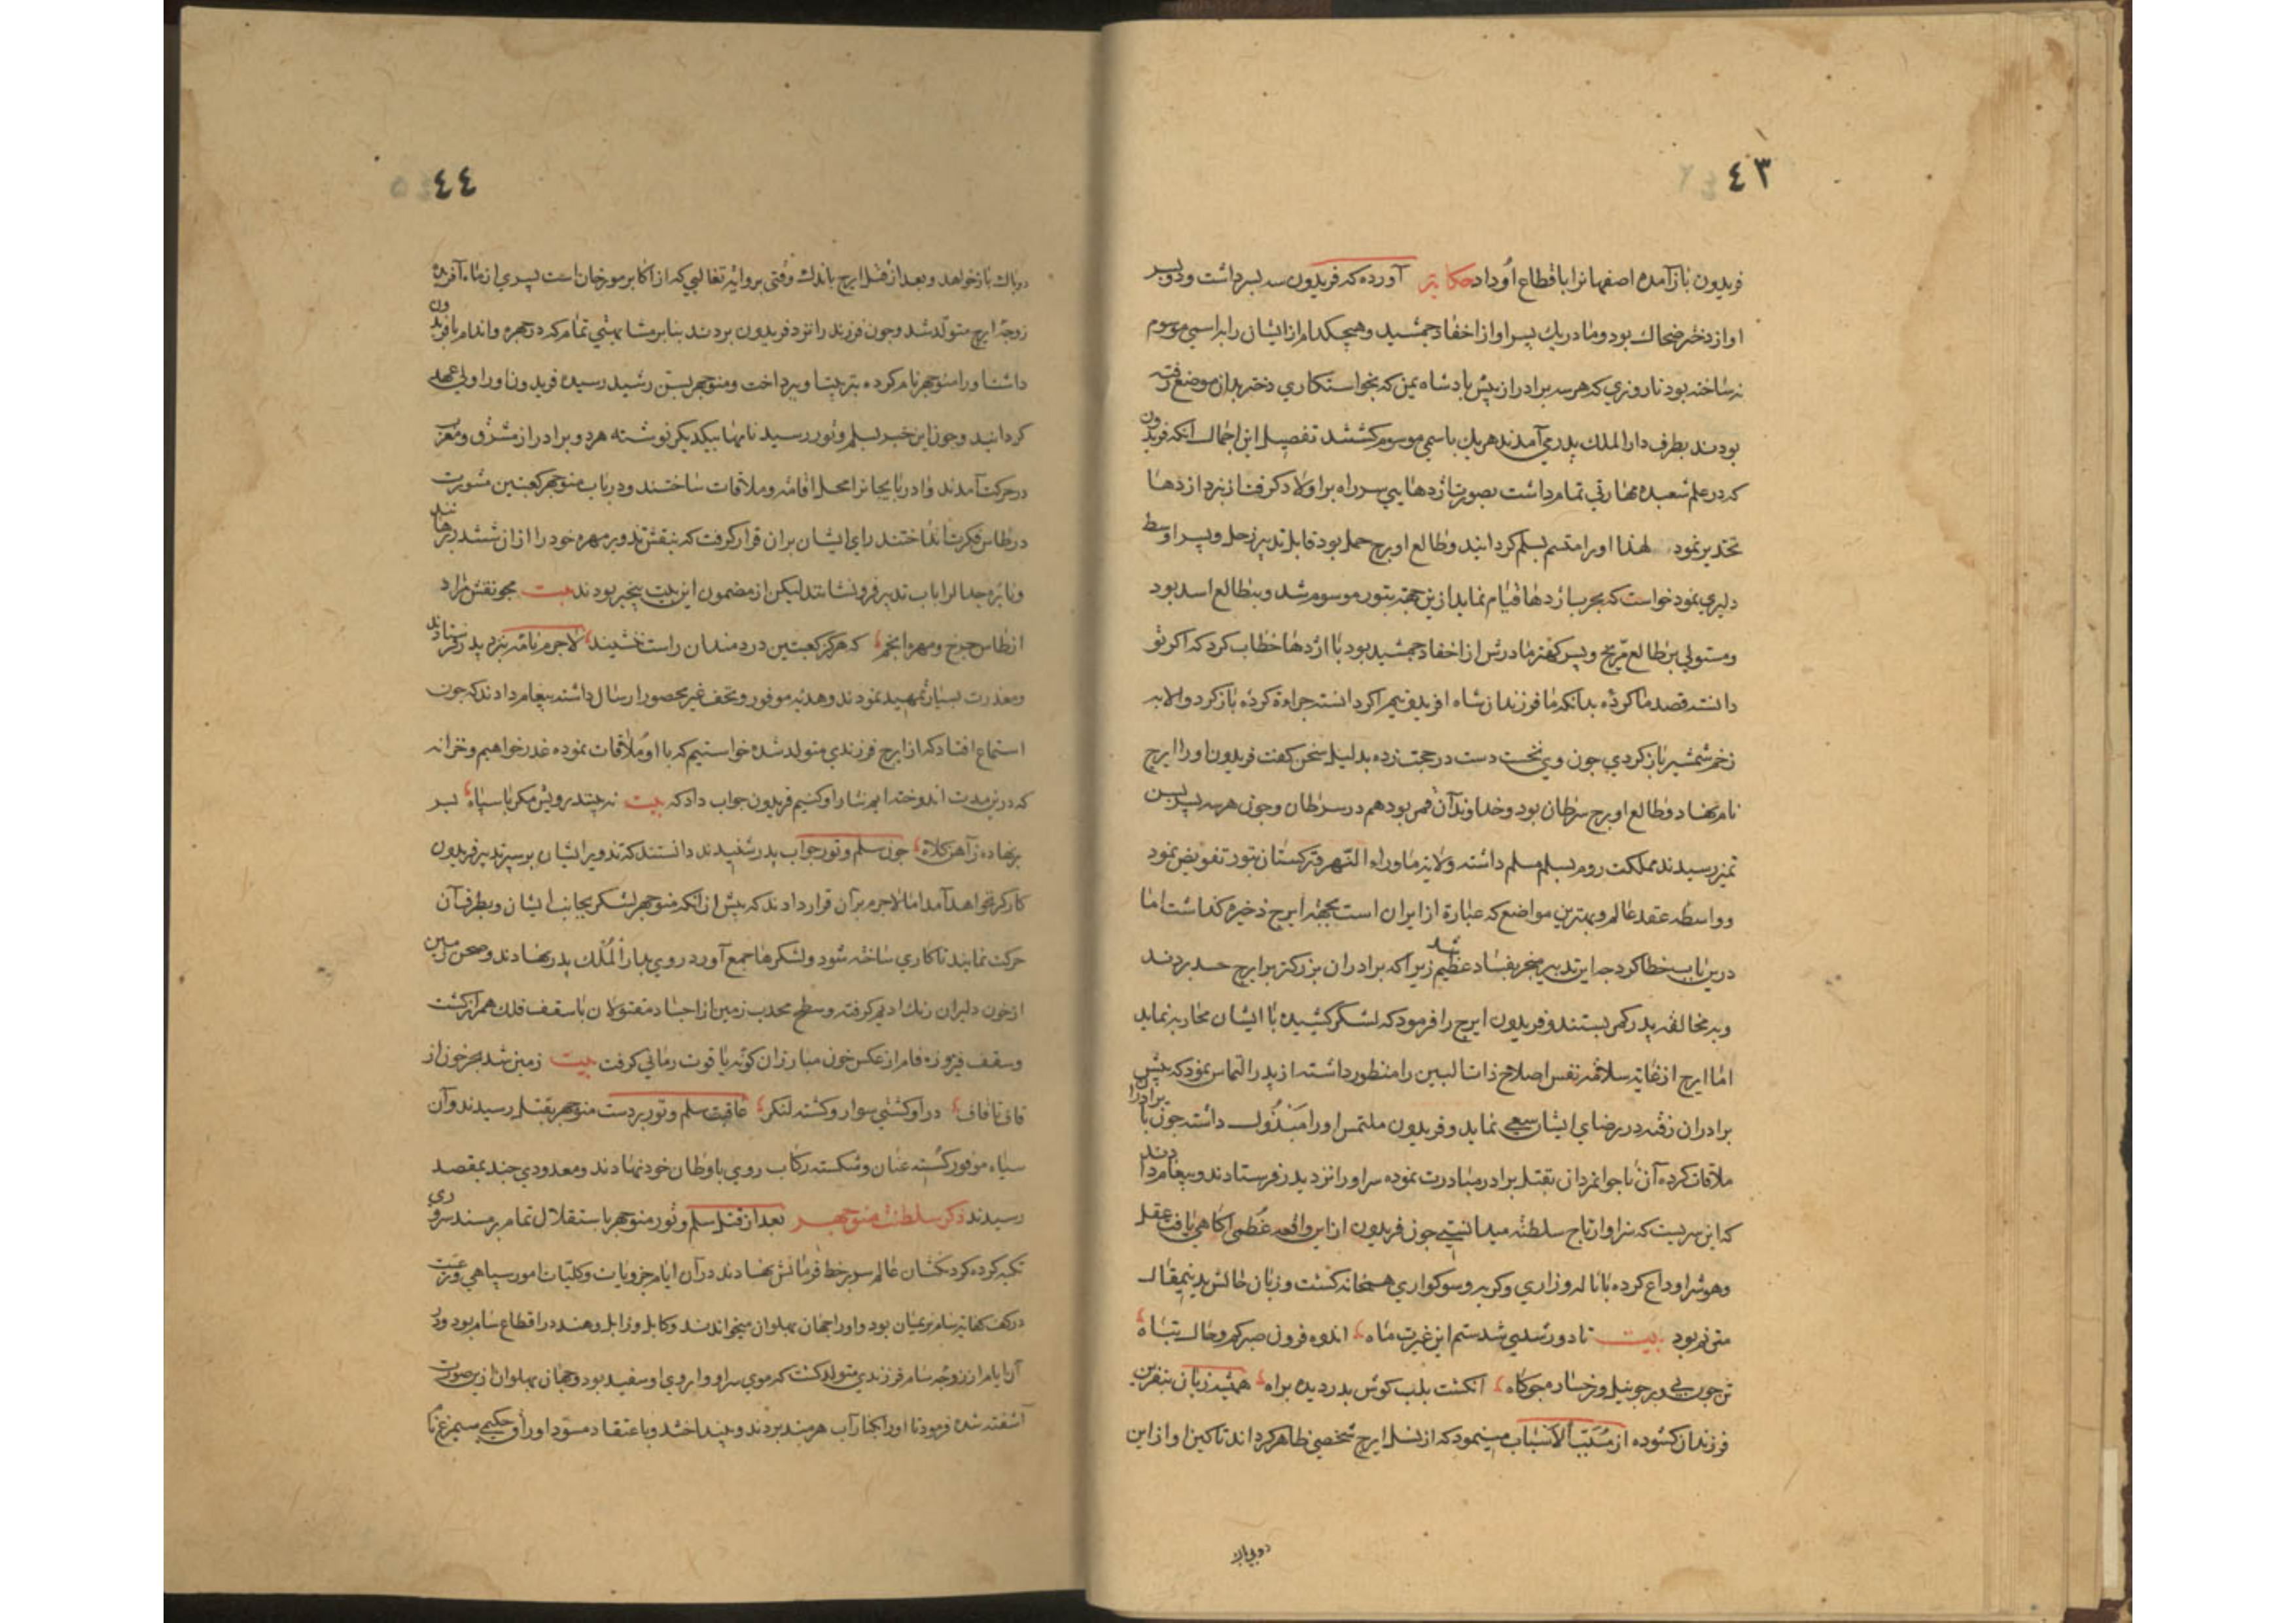 ٤٣
فریدون بازآمده اصفهانرا باقطاع اوداد حکایتر آورده که فریدون سه پسر داشت و دو پسر
او از دختر ضحاک بود و مادر یک پسر او از احفاد جمشید و هیچکدام از ایشان را براسمی موسوم
نه ساخته بود تا روزی که هر سه برادر از پیش پادشاه یمن که بخواستکاری دختر بدان موضع رفته
بودند بطرف دارالملک پدر می آمدند هر یک باسمی موسوم کشتند تفصیل این اجمال آنکه فریدون
که در علم شعبده مهارتی تمام داشت بصورت اژدهایی سر راه بر اولاد کرفت از اژدها
تحذیر نمود لهذا او را متسم بسلم کردانید و طالع او برج حمل بود قابل تدبیر زحل و پسر اوسط
دلیری نمود خواست که بحرب اژدها قیام نماید ازین جهته بتور موسوم شد و بطالع اسد بود
و مستولی بر طالع مریخ و پسر کهتر مادرش از احفاد جمشید بود با اژدها خطاب کرد که اکر تو
دانسته قصد ما کردۀ بدانکه ما فرزندان شاه افریدونیم و اکر دانسته جراءة کردۀ باز کرد والا به
زخم شمشیر باز کردی چون وی نخست دست در حجت زده بدلیل سخن کفت فریدون او را ایرج
نام نهاد و طالع او برج سرطان بود و خداوند آن قمر بود هم در سرطان و چون هر سه پسر بسن
تمیز رسیدند مملکت روم بسلم مسلم داشته ولایة ماوراء النهر و ترکستان بتور تفویض نمود
و واسطه عقد عالم و بهترین مواضع که عبارة از ایران است بجهة ایرج ذخیره کذاشت اما
درین باب خطا کرد چه این تدبیر منجر بفساد عظیم شد زیرا که برادران بزرکتر بر ایرج حسد بردند
و به مخالفة پدر کمر بستند و فریدون ایرج را فرمود که لشکر کشیده با ایشان محاربه نماید
اما ایرج از غایة سلامة نفس اصلاح ذات البین را منظور داشته از پدر التماس نمود که پیش
برادران رفته در رضای ایشان سعی نماید و فریدون ملتمس او را مبذول داشته چون با برادرا
ملاقات کرده آن ناجوانمردان بقتل برادر مبادرت نموده سر او را نزد پدر فرستادند و پیغام دادند
که این سریست که سزاوار تاج سلطنة میدانستی چون فریدون از این واقعه عظمی اکاهی یافت عقل
و هوش را وداع کرده با ناله و زاری و کریه و سوکواری همخانه کشت و زبان حالش بدینمقال
مترنم بود بیت تا دور شدی شدستم این غیرت ماه اندوه فزون صبر کم و حال تباه
تن چون نی و بر چو نیل و رخسار چو کاه انکشت بلب کوش بدر دیده براه همیشه زبان بنفرین
فرزندان کشوده از مسبب الاسباب مسینمود که از نسل ایرج شخصی ظاهر کرداند تا کین او از این
دوبیباک
٤٤
دوباک باز خواهد و بعد از قتل ایرج باندک وقتی بروایة تغالبی که از اکابر مورخان است پسری از ماه آفرید
زوجۀ ایرج متولد شد و چون فرزند را نزد فریدون بردند بنابر مشابهتی تمام که در چهره و اندام بافریدون
داشت او را منوچهر نام کرده بتربیت او پرداخت و منوچهر بسن رشید رسیده فریدون او را ولی عهد
کردانید و چون این خبر بسلم و تور رسید نامها بیکدیکر نوشته هر دو برادر از مشرق و مغرب
در حرکت آمدند و ادربایجانرا محل اقامة و ملاقات ساختند و در باب منوچهر کعبتین مشورت
در طاس فکرت انداختند رای ایشان بران قرار کرفت که بنقش تدویر مهره خود را از ان ششدر رهانند
و نایره جدال را باب تدبیر فرونشانند لیکن از مضمون این بیت بیخبر بودند بیت مجو نقش مراد
از طاس چرخ و مهره انجم که هرکز کعبتین دردمندان راست ننشیند لاجرم نامه بنزد پدر فرستادند
و معذرت بسیار تمهید نمودند و هدیه موفور و تحف غیر محصور ارسال داشته پیغام دادند که چون
استماع افتاد که از ایرج فرزندی متولد شده خواستیم که با او ملاقات نموده عذر خواهیم و خزانه
که درین مدت اندوخته ایم نثار او کنیم فریدون جواب داد که بیت نه بینند رویش مکر با سپاه بسر
برنهاده ز آهن کلاه چون سلم و تور جواب پدر شنیدند دانستند که تدویر ایشان بر سپر تدبیر فریدون
کارکر نخواهد آمد اما لاجرم بر آن قرار دادند که پیش از آنکه منوچهر لشکر بجانب ایشان و بطرف آن
حرکت نمایند تا کاری ساخته شود و لشکرها جمع آورد روی بدار الملک پدر نهادند و صحن زمین
از خون دلیران رنک ادیم کرفته و سطح محدب زمین از اجساد مقتولان با سقف فلک همراز کشت
و سقف فیروزه فام از عکس خون مبارزان کونه یاقوت رمانی کرفت بیت زمین شد بحر خون از
قاف تا قاف در او کشتی سوار و کشته لنکر عاقبت سلم و تور بر دست منوچهر بقتل رسیدند و آن
سپاه موفور کسسته عنان و شکسته رکاب روی باوطان خود نهادند و معدودی چند بمقصد
رسیدند ذکر سلطنت منوچهر بعد از قتل سلم و تور منوچهر باستقلال تمام بر مسند سروری
تکیه کرده کردنکشان عالم سر بر خط فرمانش نهادند در آن ایام جزویات و کلیات امور سپاهی و رعیت
در کف کفایة سام نریمان بود و او را جهان پهلوان میخواندند و کابل و زابل و هند در اقطاع سام بود و در
آن ایام از زوجه سام فرزندی متولد کشت که موی سر او و ابروی او سفید بود و جهان پهلوان ازین صورت
آشفته شده فرمود تا او را بکنار آب هرمند بردند و بینداختند و باعتقاد مسود اوراق حکیمی سیمرغ نام